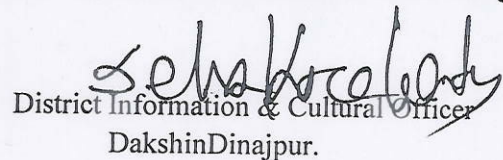 District Information & Cultural Officer
DakshinDinajpur.